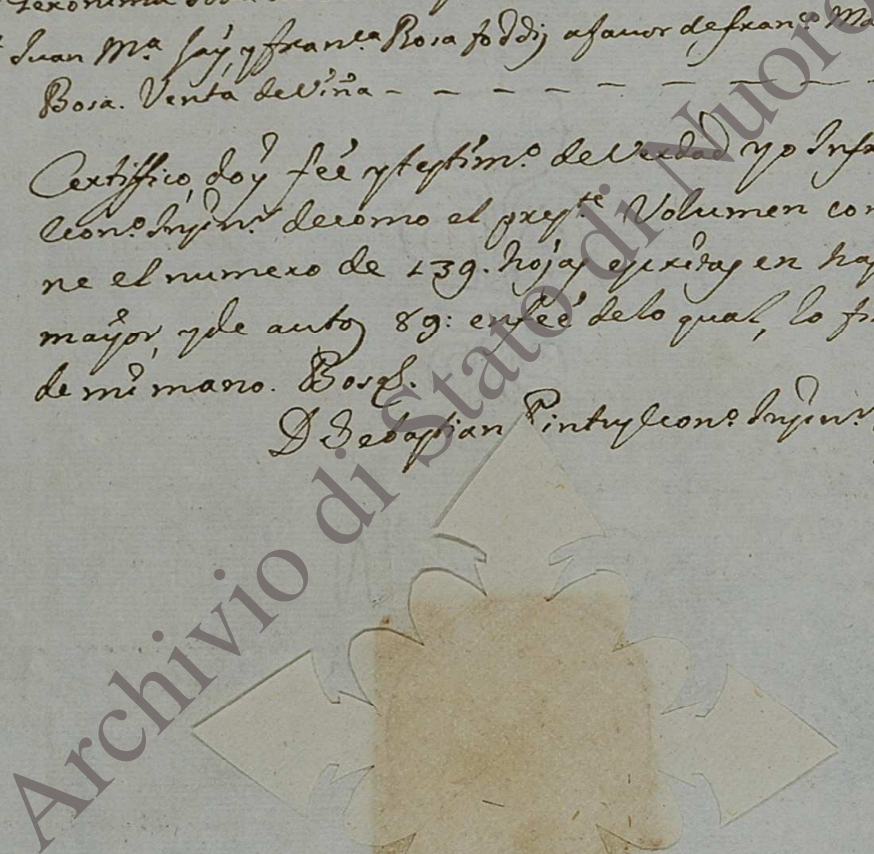 Geronima
Juan Mª Say, y Franᶜᵃ Rosa Foddy afavor de Franᶜᵒ Ma
Bosa. Venta de Viña - - - - - - - - -
Certiffico, doy feé y testimº de Verdad yo Infra
Econº Insinʳ de como el presᵗᵉ Volumen con
ne el numero de 139. hojas escritas en
mayor, y de autos 89: en feé de lo qual, lo fir
de mi mano. Bosa
D Sebastian Pintus Econº Insinʳ
Archivio di Stato di Nuoro